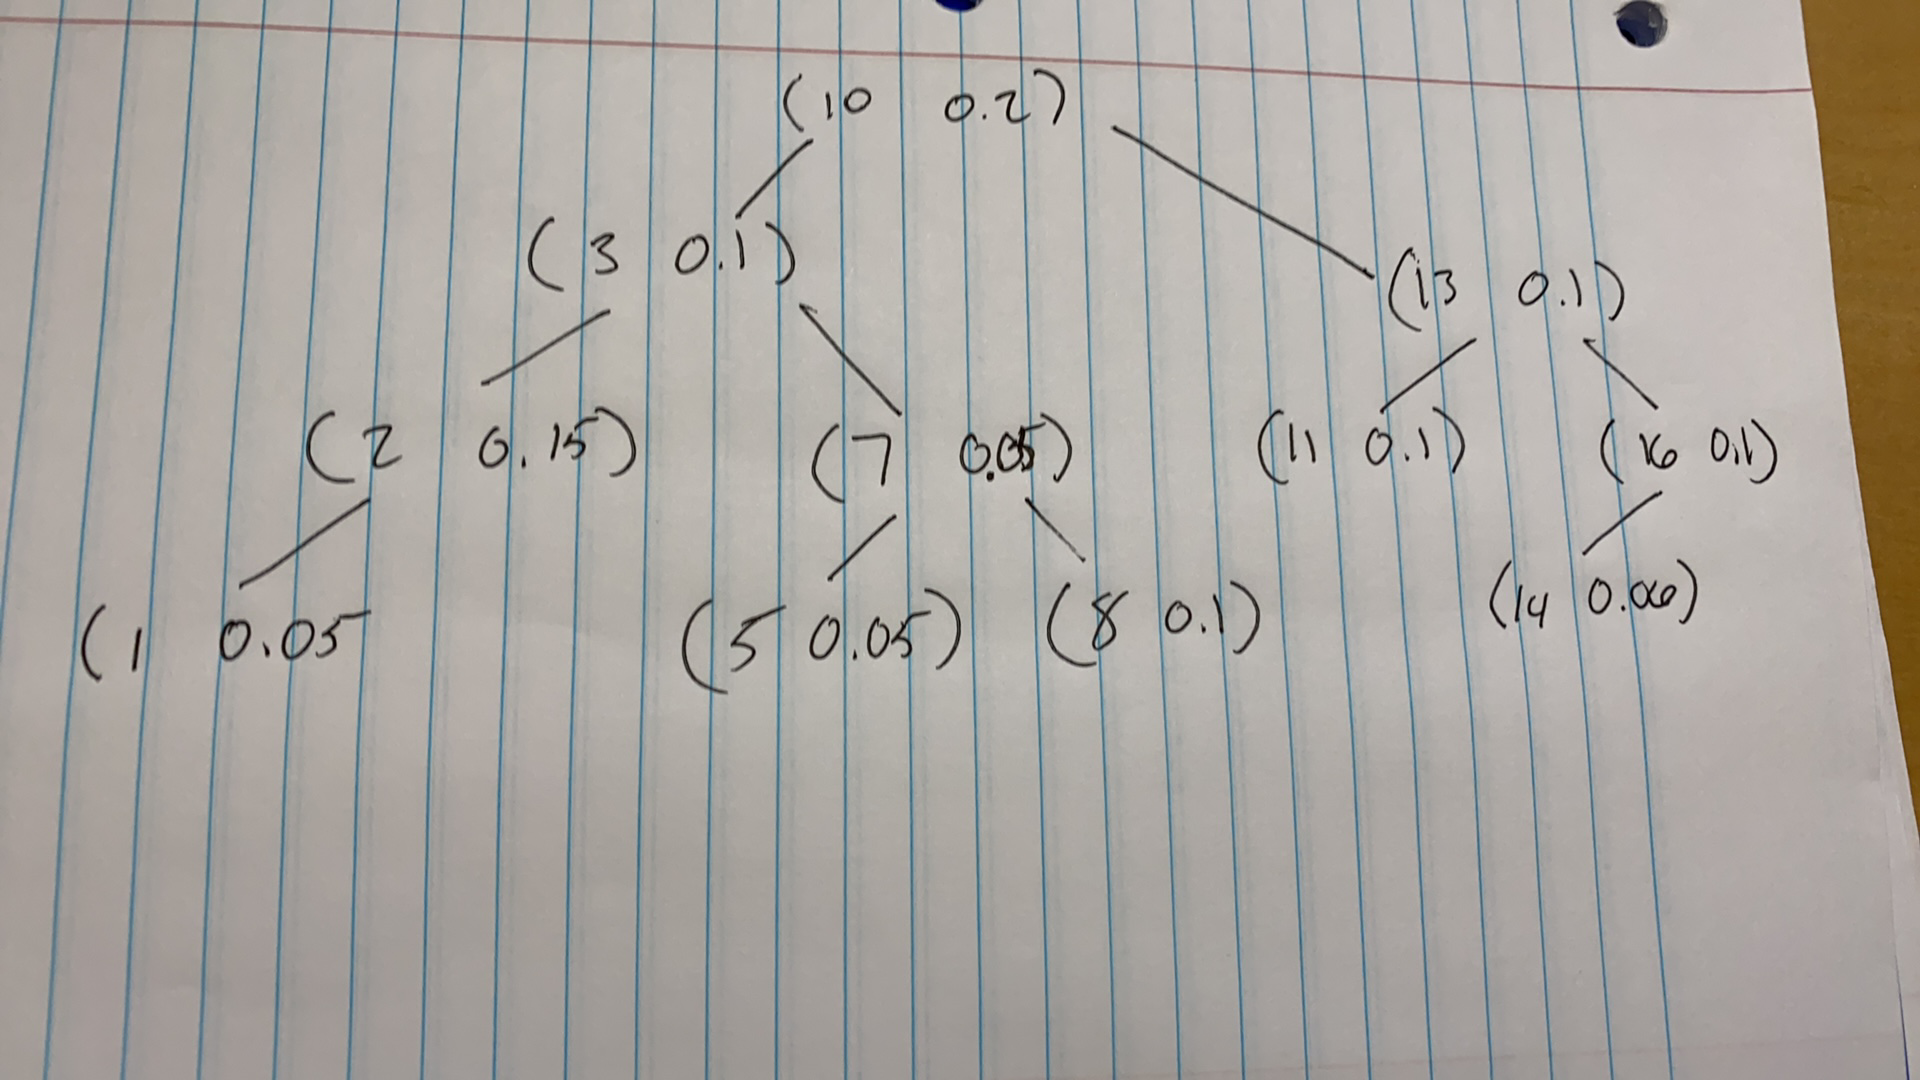 (10 0.2)
(3 0.1) (13 0.1)
(2 0.15) (7 0.05) (11 0.1) (16 0.1)
(1 0.05 (5 0.05) (8 0.1) (14 0.06)